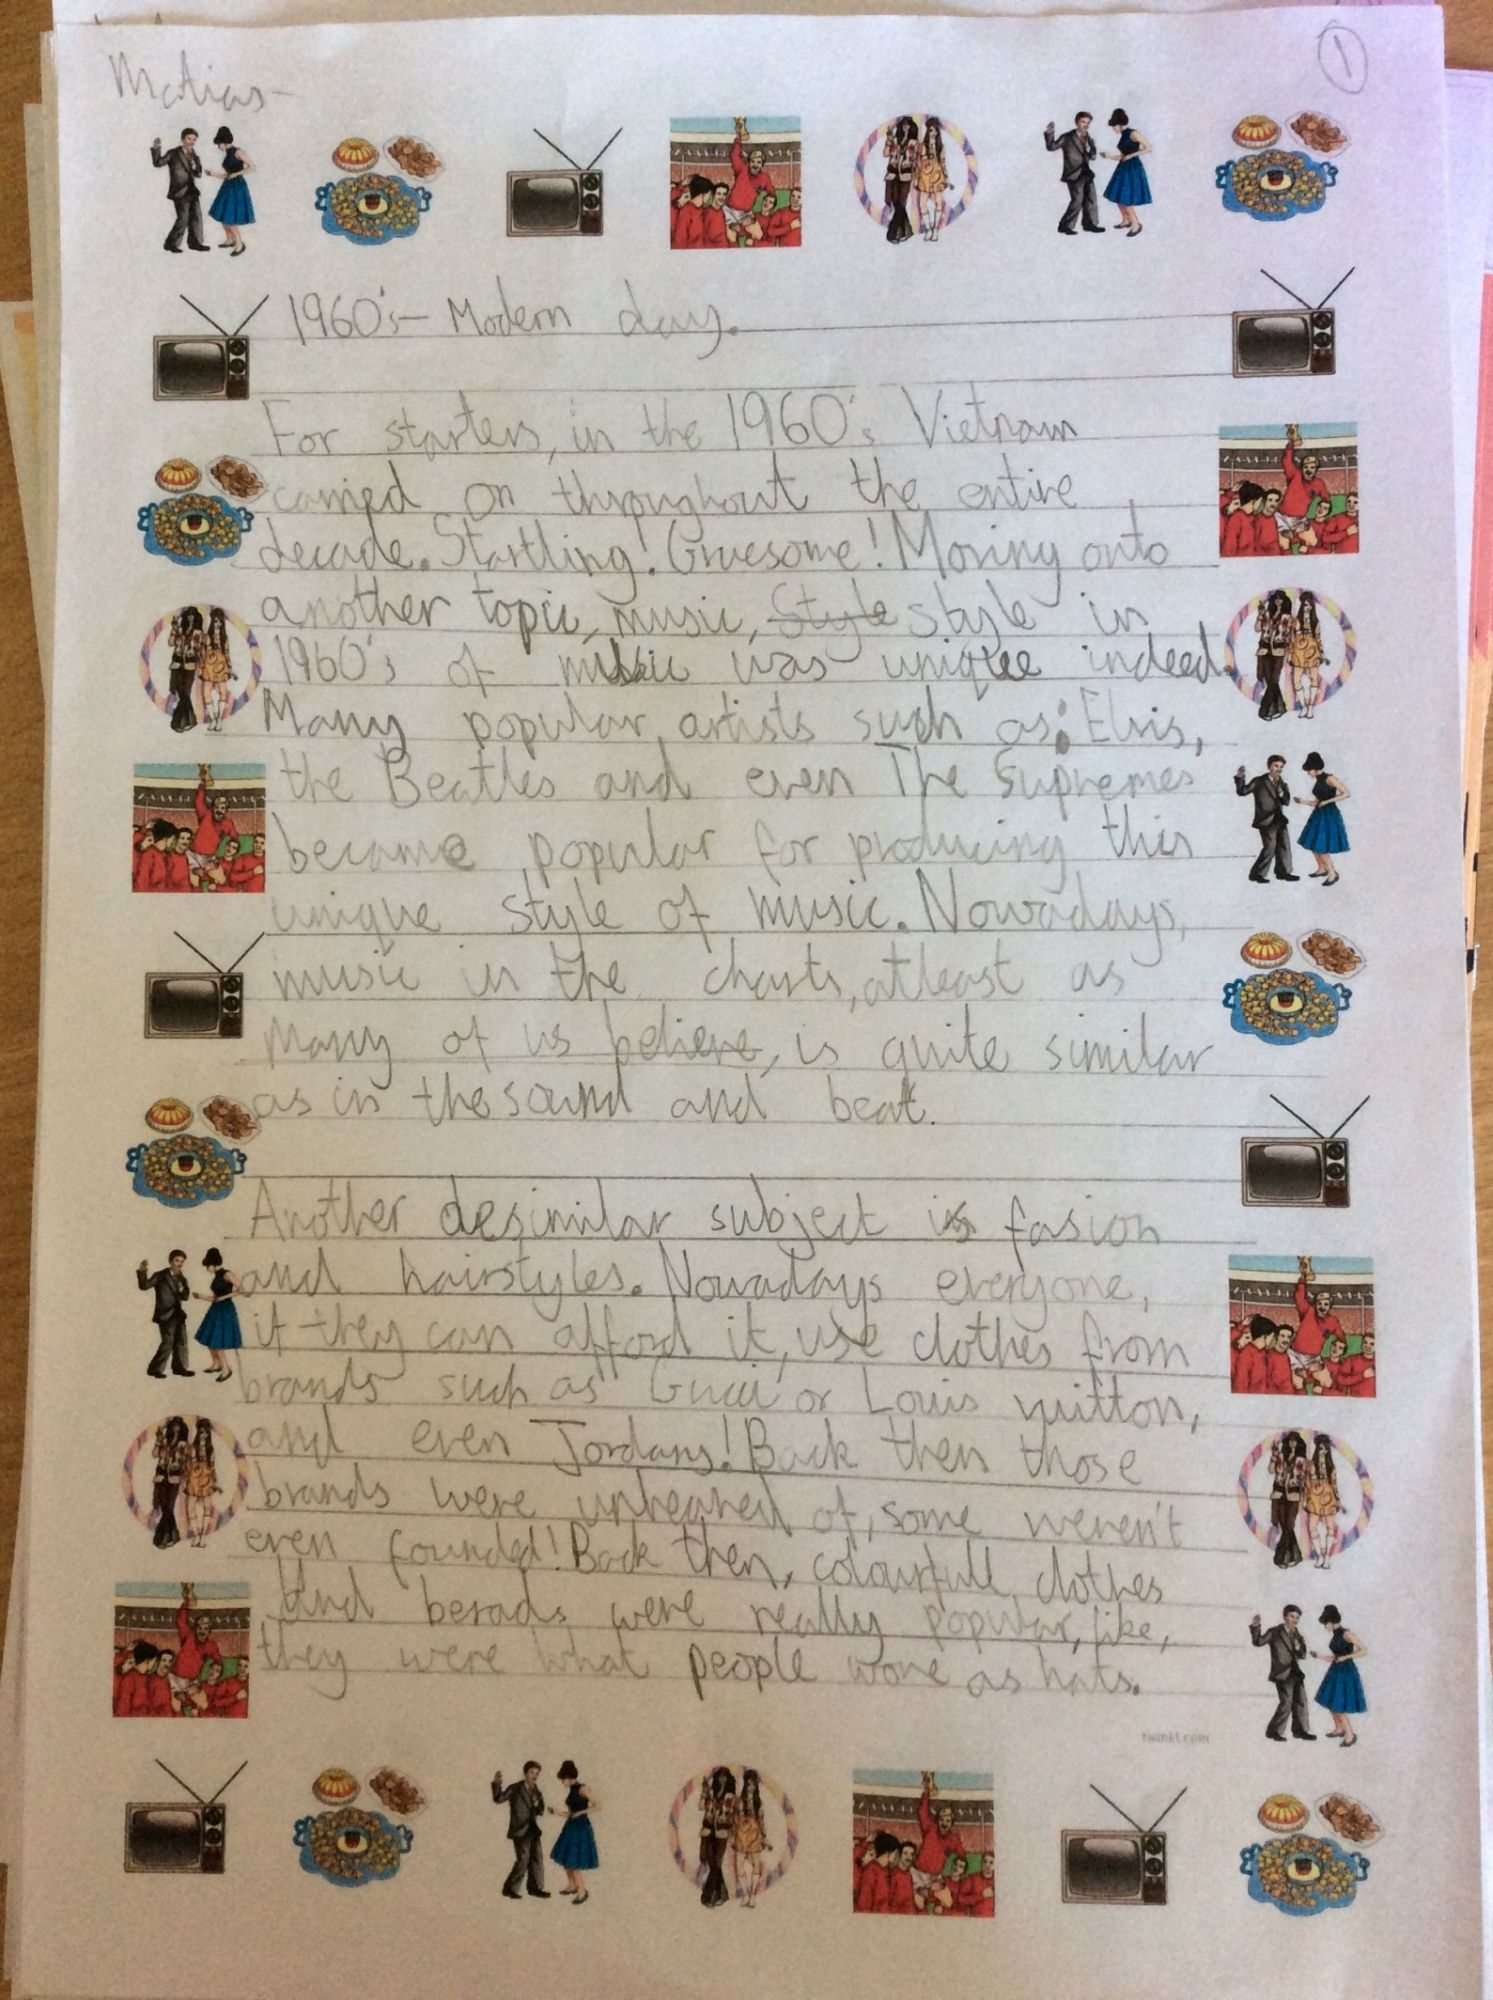 Matias-
1
1960's- Modern day.
For starters, in the 1960's Vietnam
carried on throughout the entire
decade. Startling! Gruesome! Moving onto
another topic, music, Style style in
1960's of music was unique indeed.
Many popular artists such as: Elvis,
the Beatles and even The Supremes
became popular for producing this
unique style of music. Nowadays,
music in the charts, atleast as
Many of us believe, is quite similar
as in the sound and beat.
Another desimilar subject is fasion
and hairstyles. Nowadays everyone,
if they can afford it, use clothes from
brands such as Gucci or Louis vuitton,
and even Jordans! Back then those
brands were unheared of, some weren't
even founded! Back then, colourfull clothes
and berads were really popular, like,
they were what people wore as hats.
twinkl.com